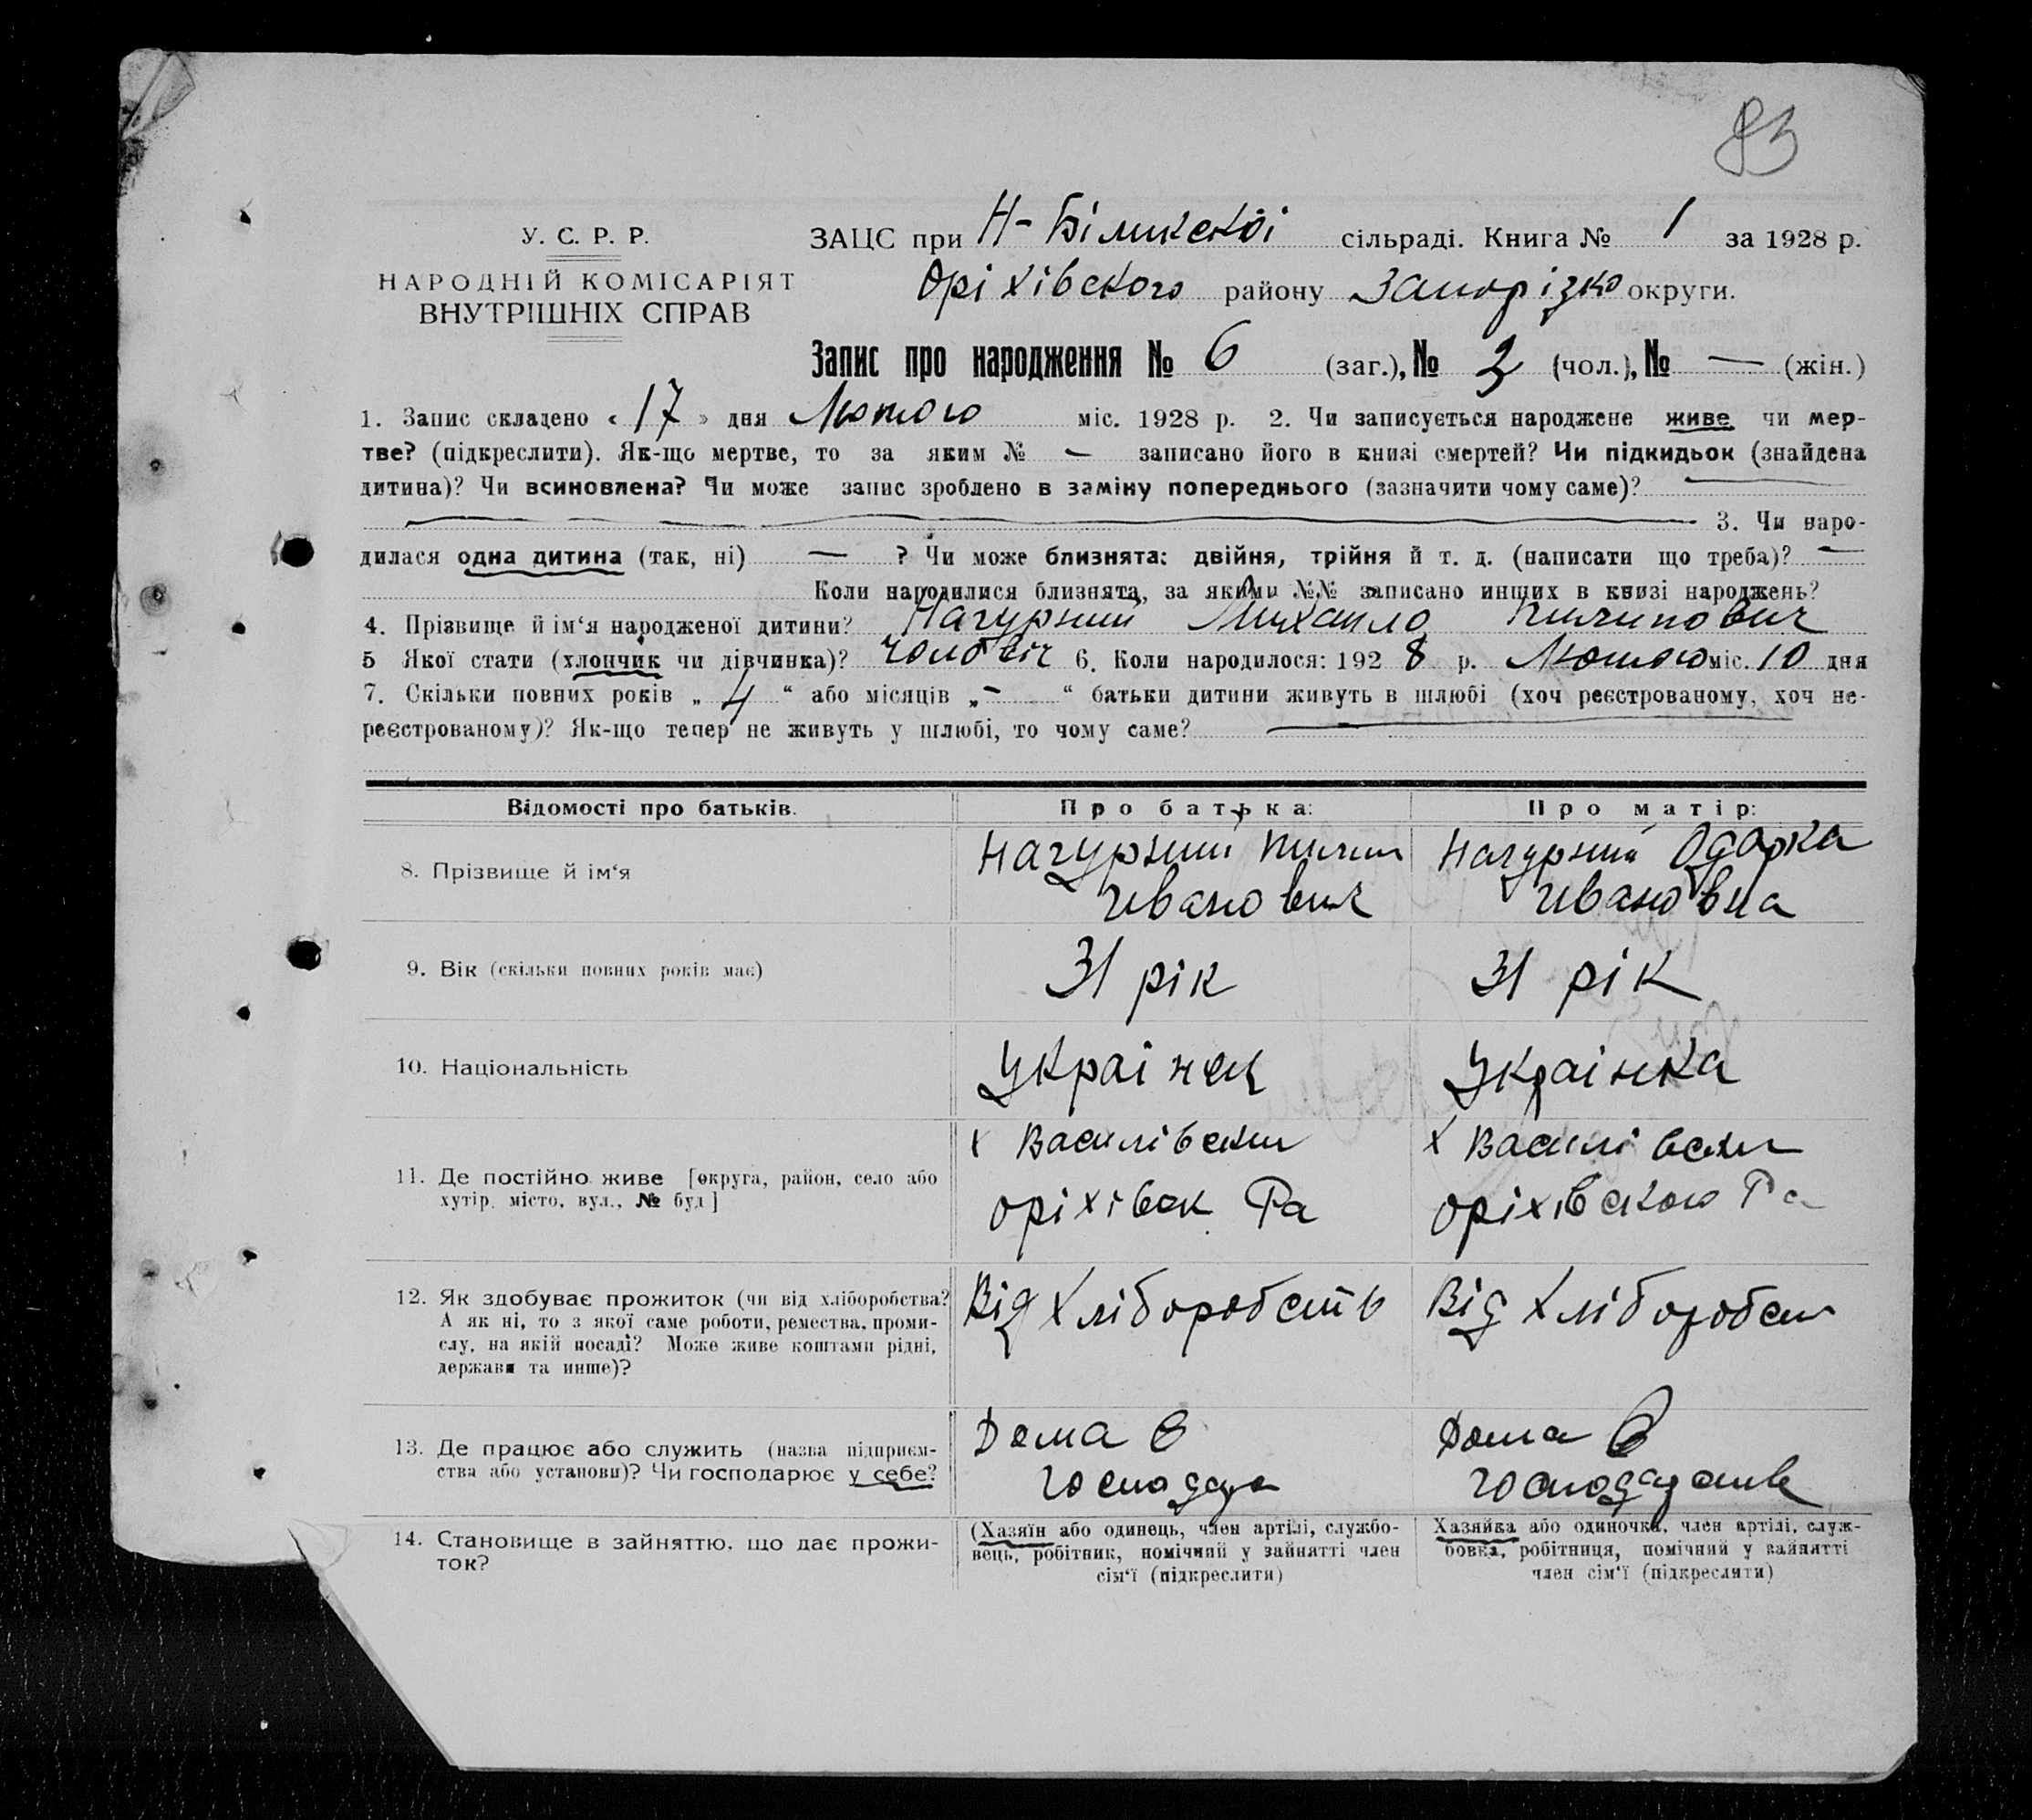 83
У. С. Р. Р.
НАРОДНІЙ КОМІСАРІЯТ
ВНУТРІШНІХ СПРАВ
ЗАЦС при Н-Біликскої сільраді. Книга № 1 за 1928 р.
Оріхівського району Запорізько округи.
Запис про народження № 6 (заг.), № 3 (чол.), № — (жін.)
1. Запис складено « 17 » дня Лютого міс. 1928 р. 2. Чи записується народжене живе чи мер-
тве? (підкреслити). Як-що мертве, то за яким № — записано його в книзі смертей? Чи підкидьок (знайдена
дитина)? Чи всиновлена? Чи може запис зроблено в заміну попереднього (зазначити чому саме)? —
— 3. Чи наро-
дилася одна дитина (так, ні) — ? Чи може близнята: двійня, трійня й т. д. (написати що треба)? —
Коли народилися близнята, за якими №№ записано инших в книзі народжень?
4. Прізвище й ім‘я народженої дитини? Нагурний Михаило Пилипович
5 Якої стати (хлопчик чи дівчинка)? Чоловіч 6. Коли народилося: 192 8 р. Лютого міс. 10 дня
7. Скільки повних років „ 4 “ або місяців „ – “ батьки дитини живуть в шлюбі (хоч реєстрованому, хоч не-
реєстрованому)? Як-що тепер не живуть у шлюбі, то чому саме? —
Відомості про батьків. Про батька: Про матір:
8. Прізвище й ім‘я
Нагурний Пилип
Иванович
Нагурний Одарка
Ивановна
9. Вік (скільки повних років має) 31 рік 31 рік
10. Національність Українец Українка
11. Де постійно живе [округа, район, село або
хутір, місто, вул., № буд]
х Василівски
Оріхівск Ра
х Василівски
Оріхівского Ра
12. Як здобуває прожиток (чи від хліборобства?
А як ні, то з якої саме роботи, ремества, проми-
слу, на якій посаді? Може живе коштами рідні,
держави та инше)?
Від Хліборобств
Від Хліборобст
13. Де працює або служить (назва підприєм-
ства або установи)? Чи господарює у себе?
Дома в
господар
Дома в
господарстве
14. Становище в зайняттю, що дає прожи-
ток?
(Хазяїн або одинець, член артілі, службо-
вець, робітник, помічний у зайнятті член
сім‘ї (підкреслити)
Хазяйка або одиночка, член артілі, служ-
бовка, робітниця, помічний у зайнятті
член сім‘ї (підкреслити)